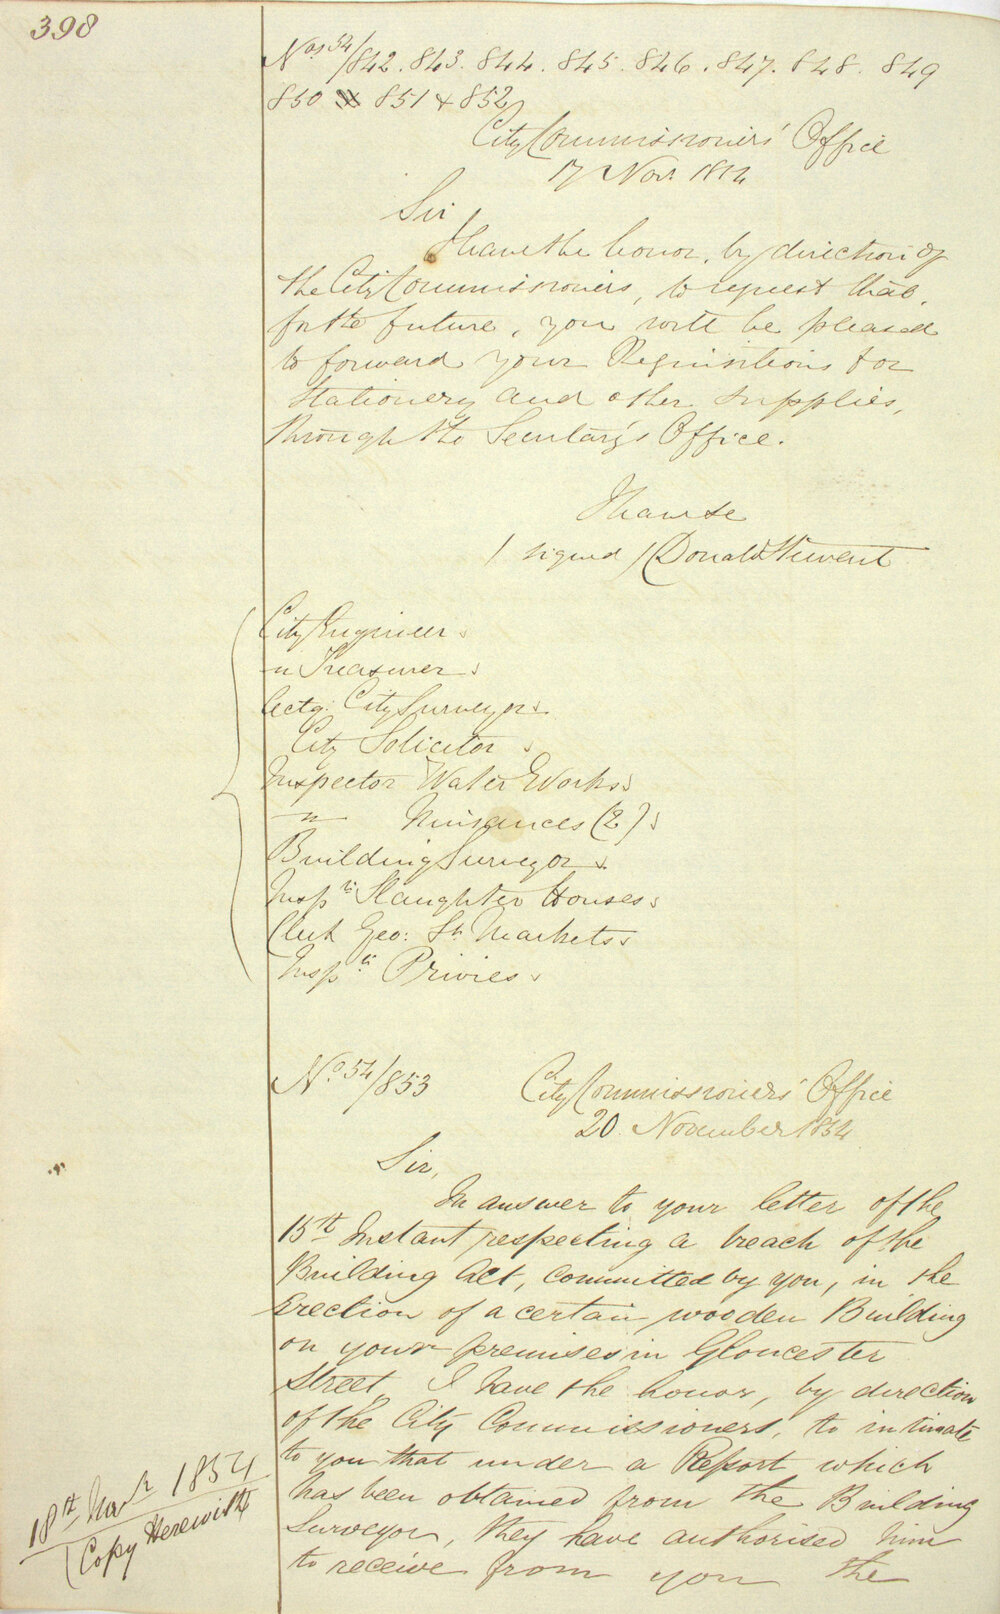 398
Nos 54/842. 843. 844. 845. 846. 847. 848. 849
850 851 & 852
City Commissioners' Office
17 Novr. 1854
Sir
I have the honor, by direction of
the City Commissioners, to request that,
for the future, you will be pleased
to forward your Requisitions for
Stationery and other supplies,
through the Secretary's Office.
I have &c
(signed) Donald Stewart
City Engineer
" Treasurer
Actg. City Surveyor
City Solicitor
Inspector Water Works
" Nuisances (2)
Building Surveyor
Inspr. Slaughter Houses
Clerk Geo: St. Markets
Inspr. Privies
No. 54/853
City Commissioners' Office
20 November 1854
Sir,
In answer to your letter of the
15th Instant respecting a breach of the
Building Act, committed by you, in the
Erection of a certain wooden Building
on your premises in Gloucester
Street, I have the honor, by direction
of the City Commissioners, to intimate
to you that under a Report which
has been obtained from the Building
Surveyor, they have authorised him
to receive from you the
18th Novr 1854
Copy Herewith